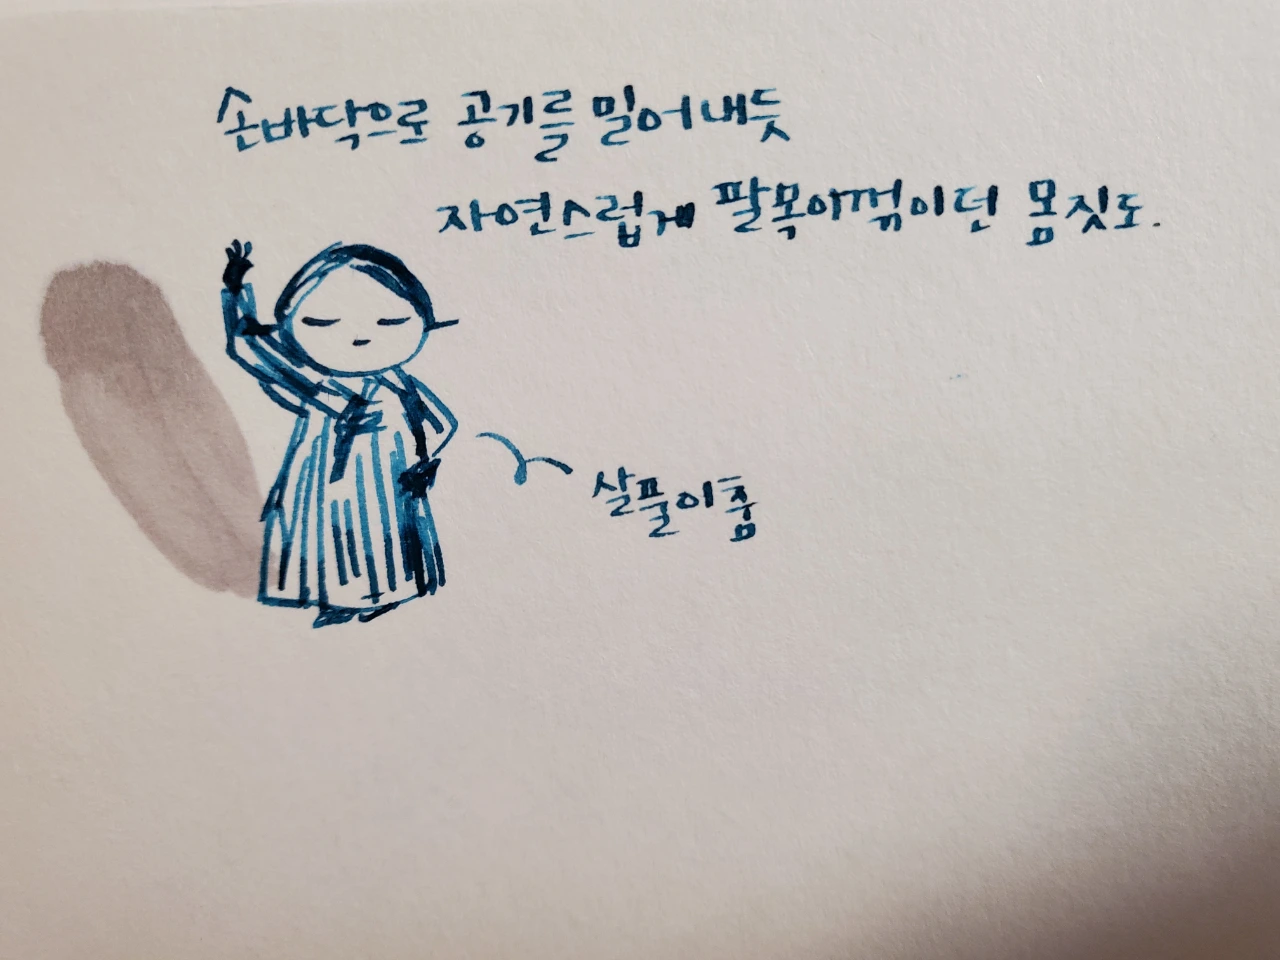 손바닥으로 공기를 밀어내듯
자연스럽게 팔목이 꺾이던 몸짓도.
살풀이춤